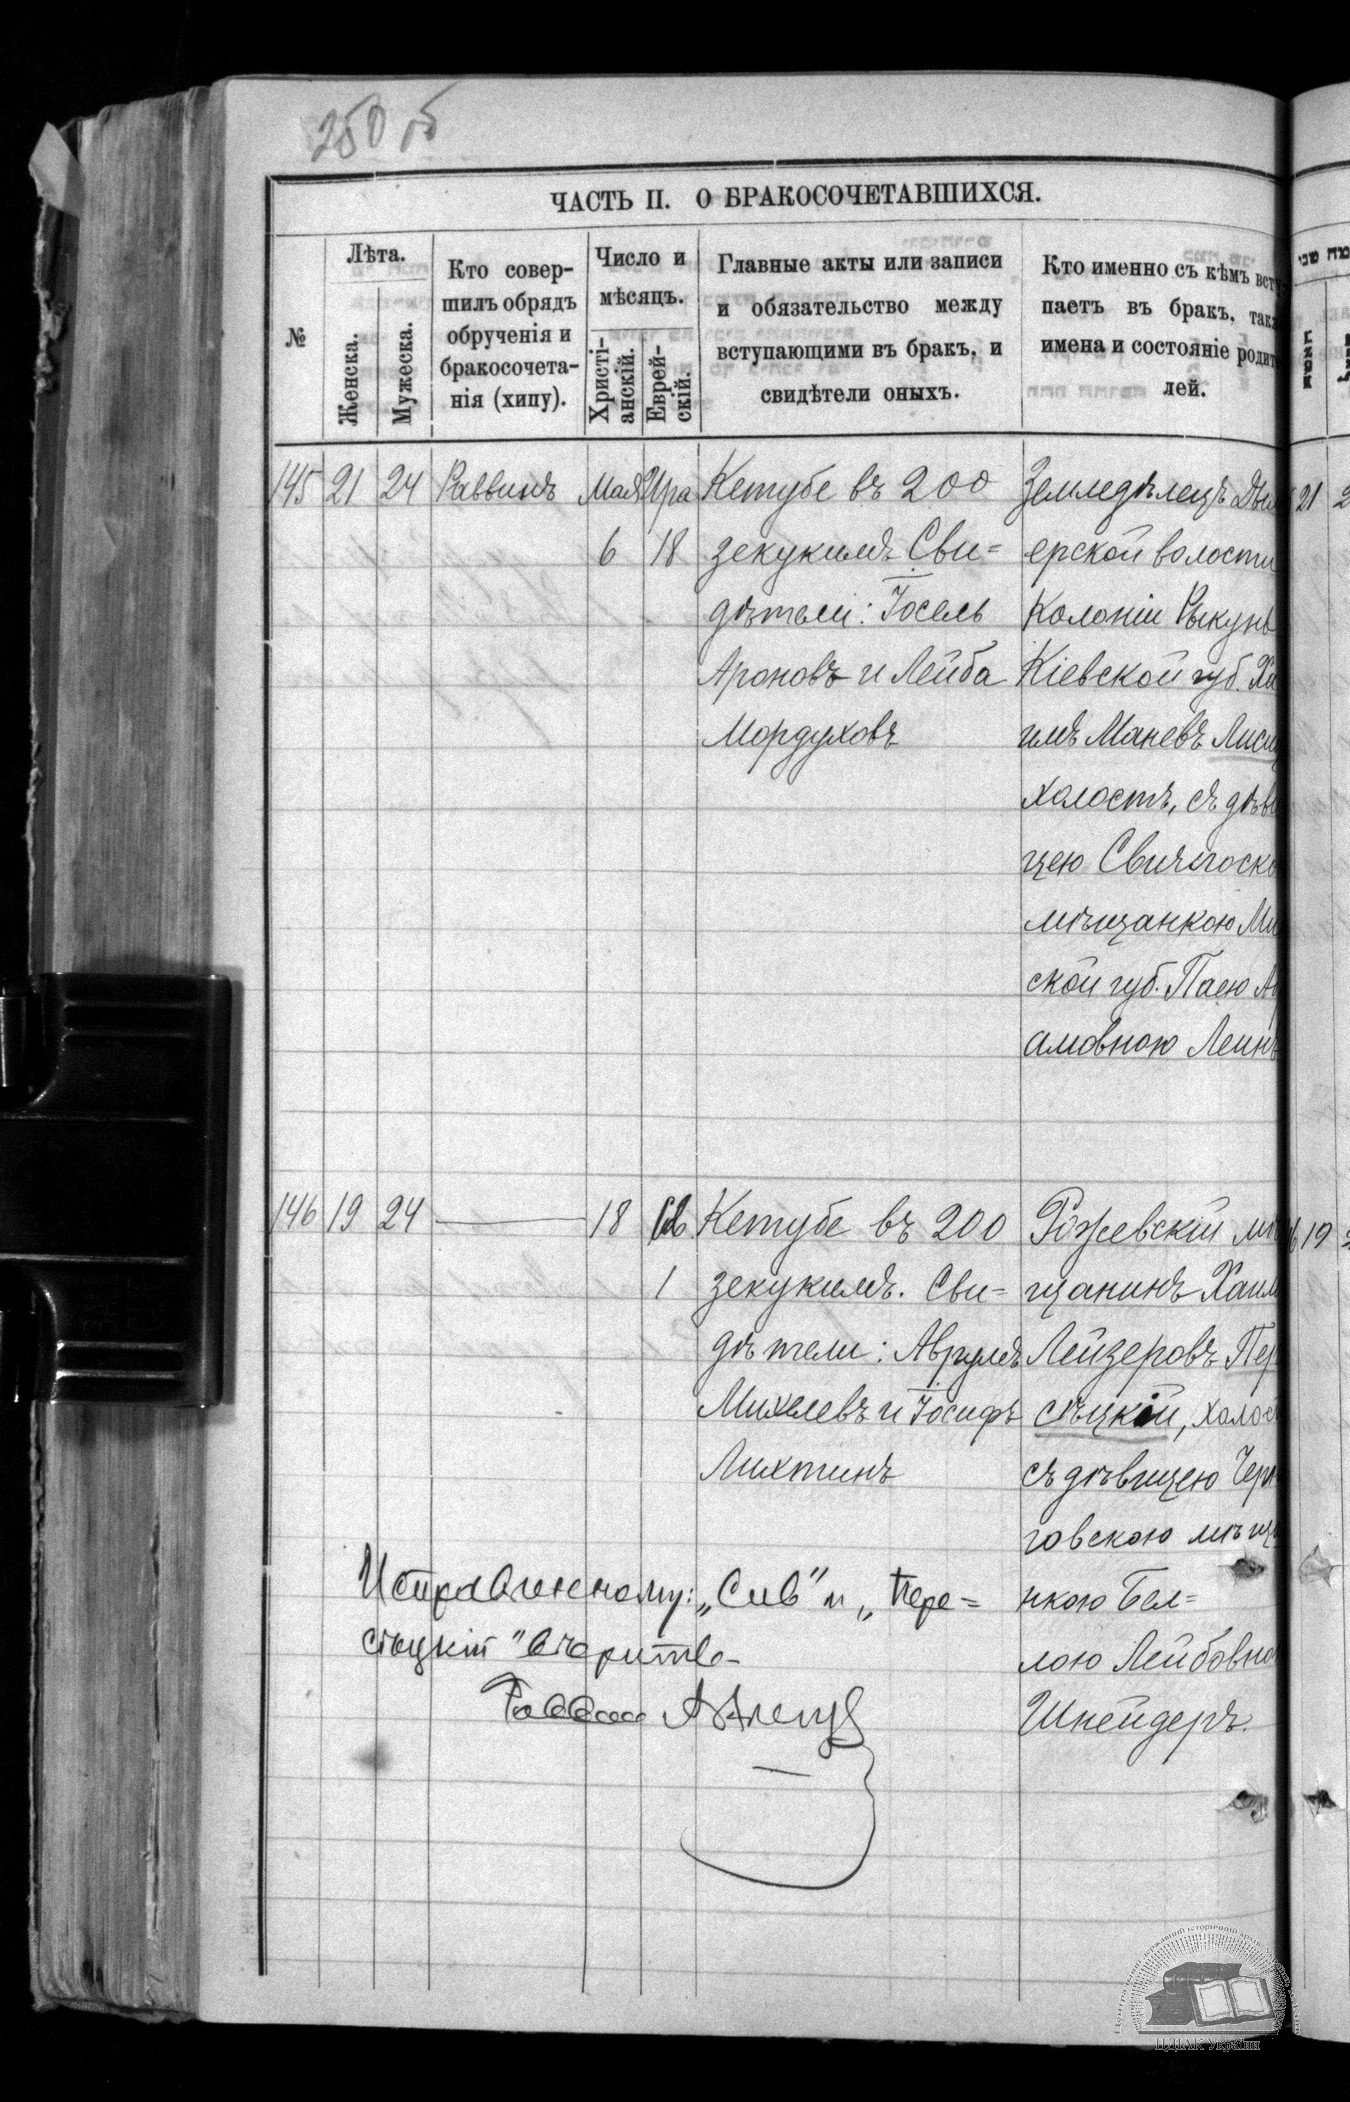 250 об
ЧАСТЬ II. О БРАКОСОЧЕТАВШИХСЯ.
№
Лѣта.
Женска.
Мужеска.
Кто совер-
шилъ обрядъ
обрученія и
бракосочета-
нія (хипу).
Число и
мѣсяцъ.
Христі-
анскій.
Еврей-
скій.
Главные акты или записи
и обязательство между
вступающими въ бракъ, и
свидѣтели оныхъ.
Кто именно съ кѣмъ всту
паетъ въ бракъ, так
имена и состояніе родит
лей.
145 21 24 Раввинъ Мая Ира
6 18
Кетубе въ 200
зекукимъ Сви=
дѣтели: Іосель
Ароновъ и Лейба
Мордуховъ
Земледѣлецъ Дым
ерской волости
Колоніи Рыкунь
Кіевской губ. Ха
имъ Маневъ Лиси
холостъ, съ дѣви
цею
мѣщанкою Ми
ской губ. Паею А
амовною Леинъ
21 2
146 19 24 — 18 Сив
1
Кетубе въ 200
зекукимъ. Сви=
дѣтели: Аврумъ
Михелевъ и Іосифъ
Лихтинъ
Рожевскій мѣ
щанинъ Хаим
Лейзеровъ Пер
сѣцкій, холос
съ дѣвицею Черн
говскою мѣща
нкою Бел=
лою Лейбовно
Шнейдеръ.
19
Исправленному: „Сив" и „Пере=
сѣцкій" вѣрить
Раввин
ЦДІАК України